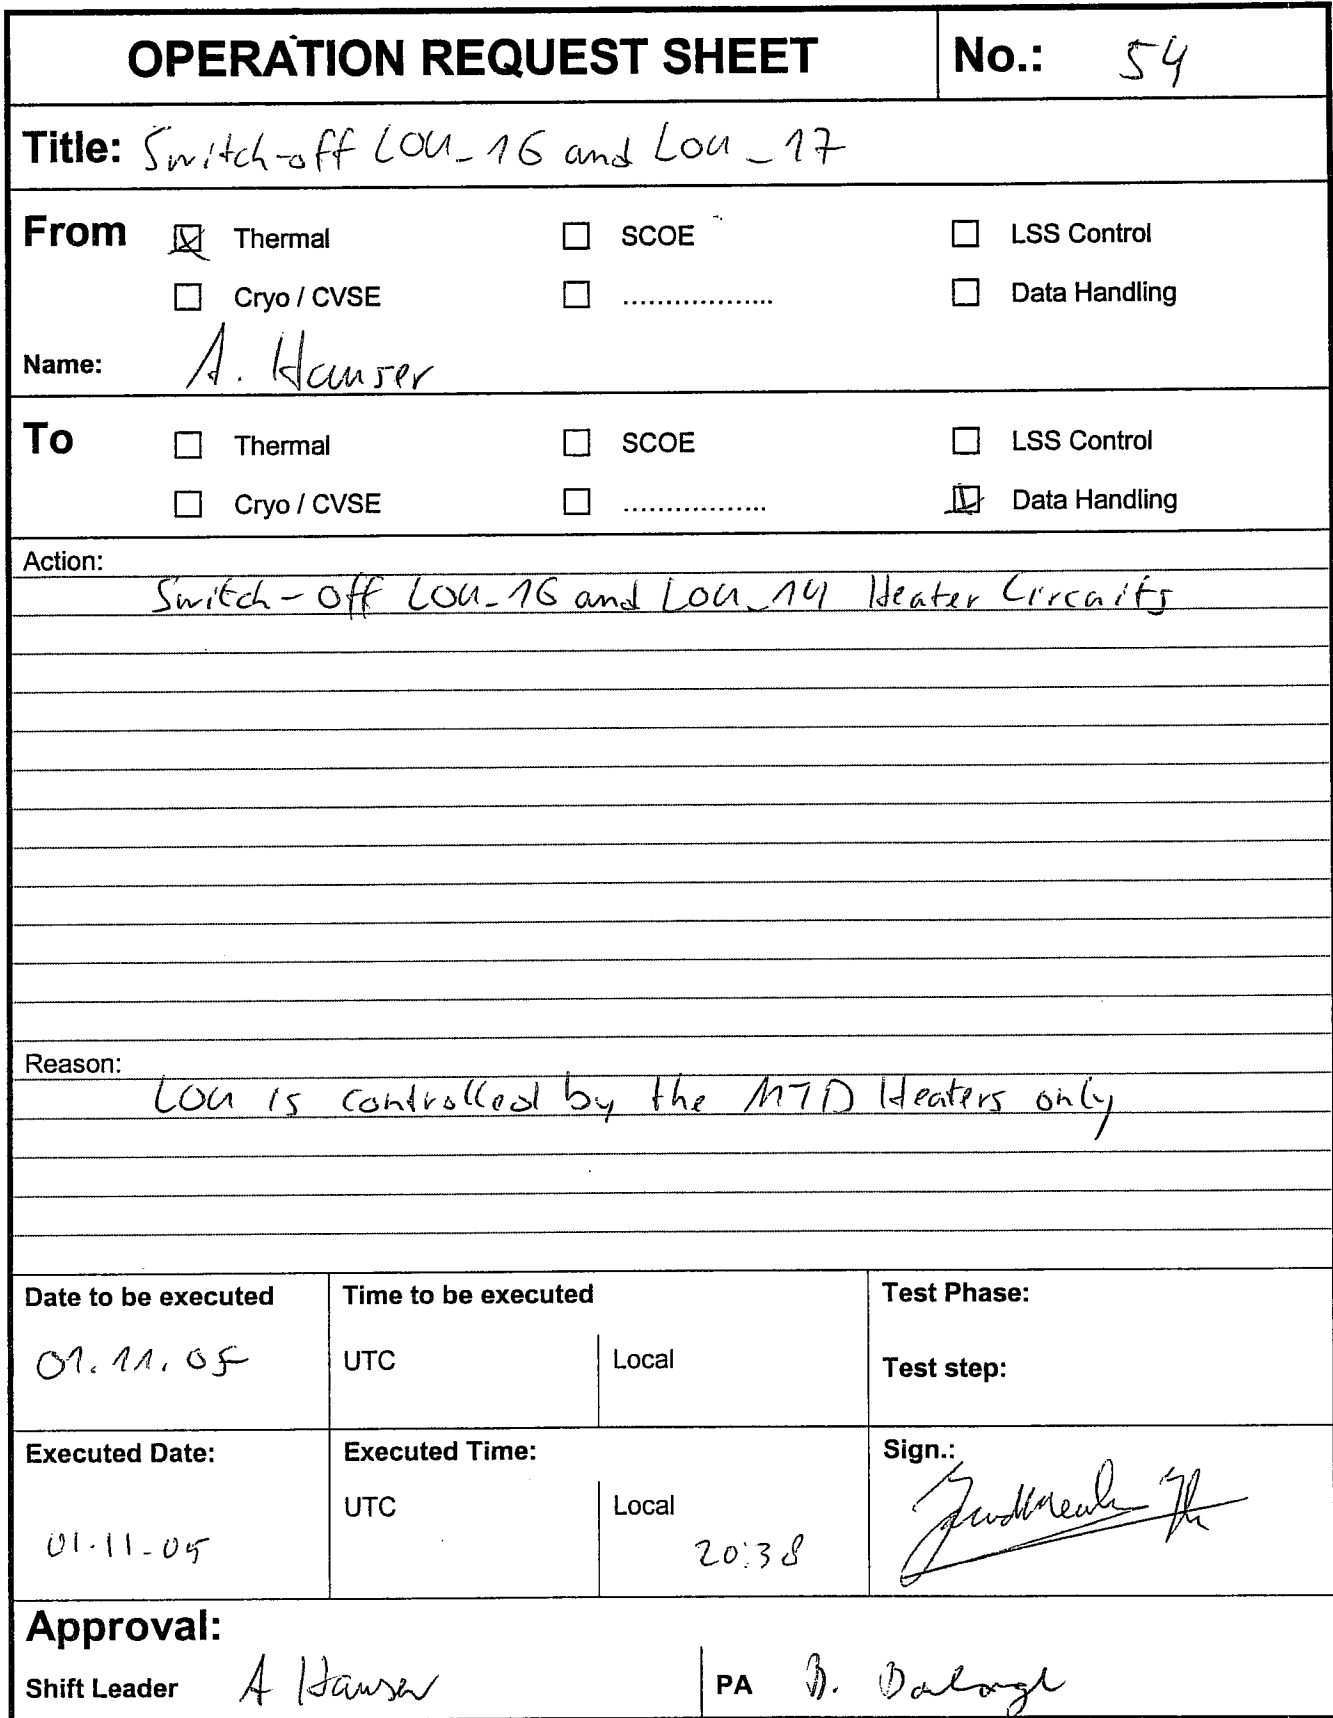 OPERATION REQUEST SHEET No.: 54
Title: Switch-off LOU_16 and LOU_17
From ☒ Thermal ☐ SCOE ☐ LSS Control
☐ Cryo / CVSE ☐ .................. ☐ Data Handling
Name: A. Hauser
To ☐ Thermal ☐ SCOE ☐ LSS Control
☐ Cryo / CVSE ☐ ................. ☒ Data Handling
Action:
Switch-off LOU_16 and LOU_14 Heater Circuits
Reason:
LOU is controlled by the MTD Heaters only
Date to be executed Time to be executed Test Phase:
01.11.05 UTC Local Test step:
Executed Date: Executed Time: Sign.:
UTC Local
01.11.05 20:38
Approval:
Shift Leader A Hauser PA